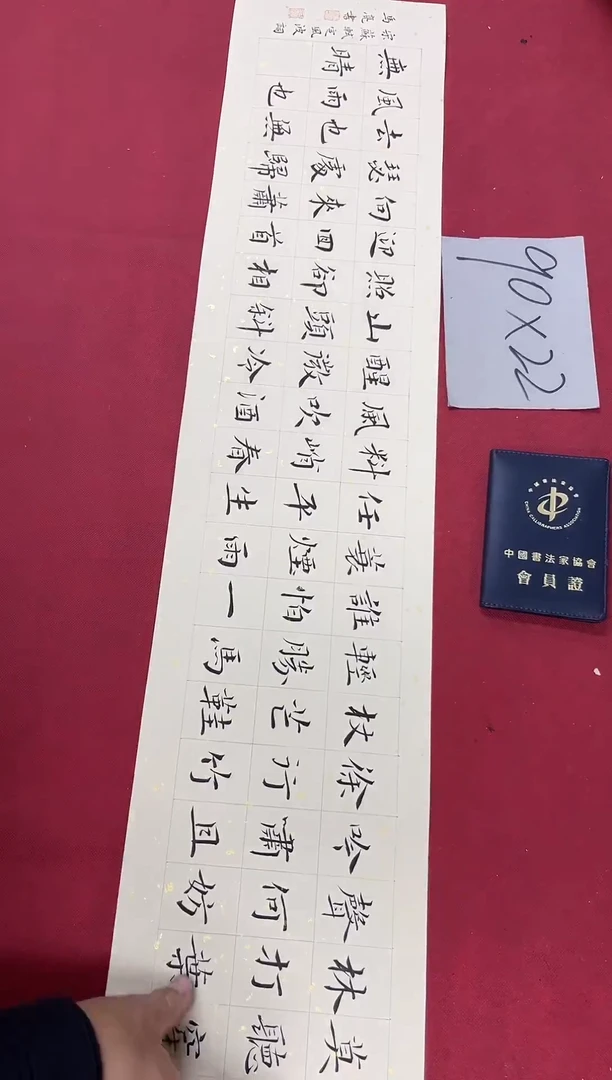 莫聽穿
林打葉
聲何妨
吟嘯且
徐行竹
杖芒鞋
輕勝馬
誰怕一
蓑煙雨
任平生
料峭春
風吹酒
醒微冷
山頭斜
照卻相
迎回首
向來蕭
瑟處歸
去也無
風雨也
無晴
宋蘇軾定風波詞
馬書
90×22
中國書法家協會
CHINA CALLIGRAPHERS ASSOCIATION
中國書法家協會
會員證